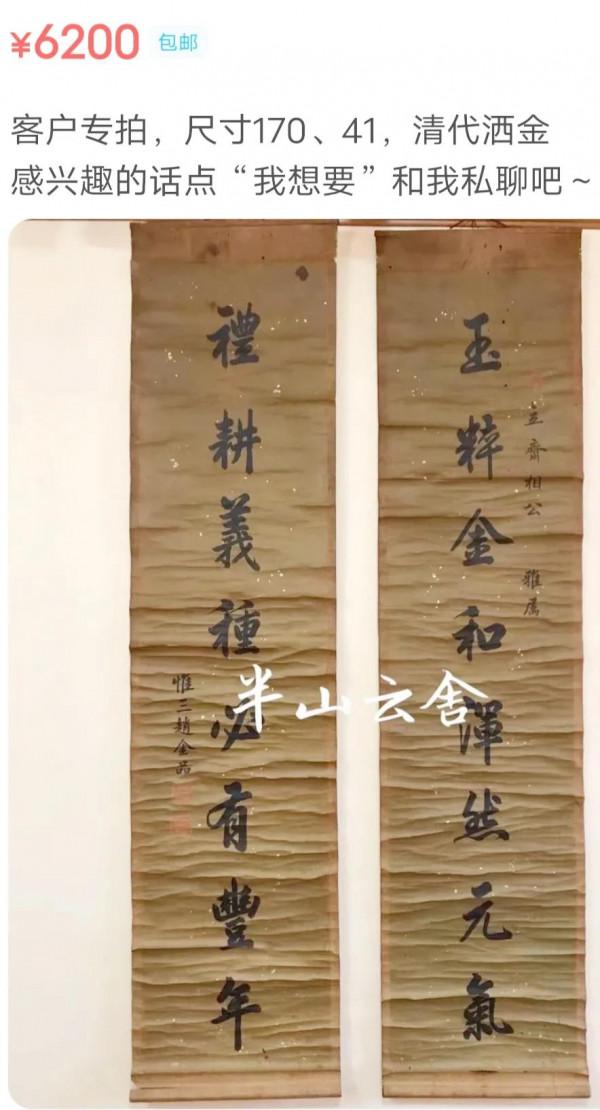 ¥6200 包邮
客户专拍，尺寸170、41，清代洒金
感兴趣的话点“我想要”和我私聊吧～
玉粹金和渾然元氣
立齋相公 雅屬
禮耕義種必有豐年
惟三趙金品
半山云舍